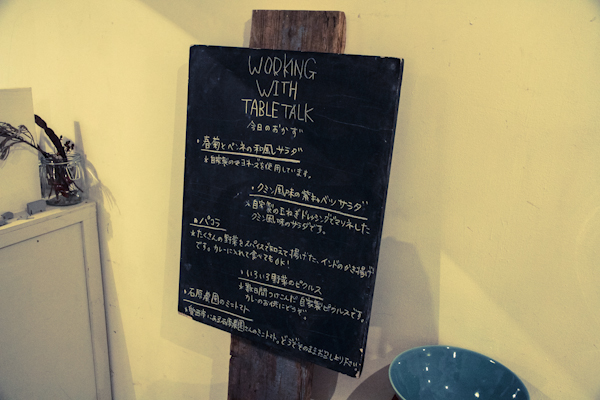 WORKING
WITH
TABLE TALK
今日のおかず
・春菊とペンネの和風サラダ
★自家製のマヨネーズを使用しています。
・クミン風味の紫キャベツサラダ
★自家製の玉ねぎドレッシングでマリネした
クミン風味のサラダです。
・パコラ
★たくさんの野菜をスパイスで和えて揚げた、インドのかき揚げ
です。カレーに入れて食べてもOK!
・いろいろ野菜のピクルス
★数日間つけこんだ自家製ピクルスです。
カレーのお供にどうぞ。
・石原農園のミニトマト
石原農園さんのミニトマト。どうぞそのままお召し上がり下さい